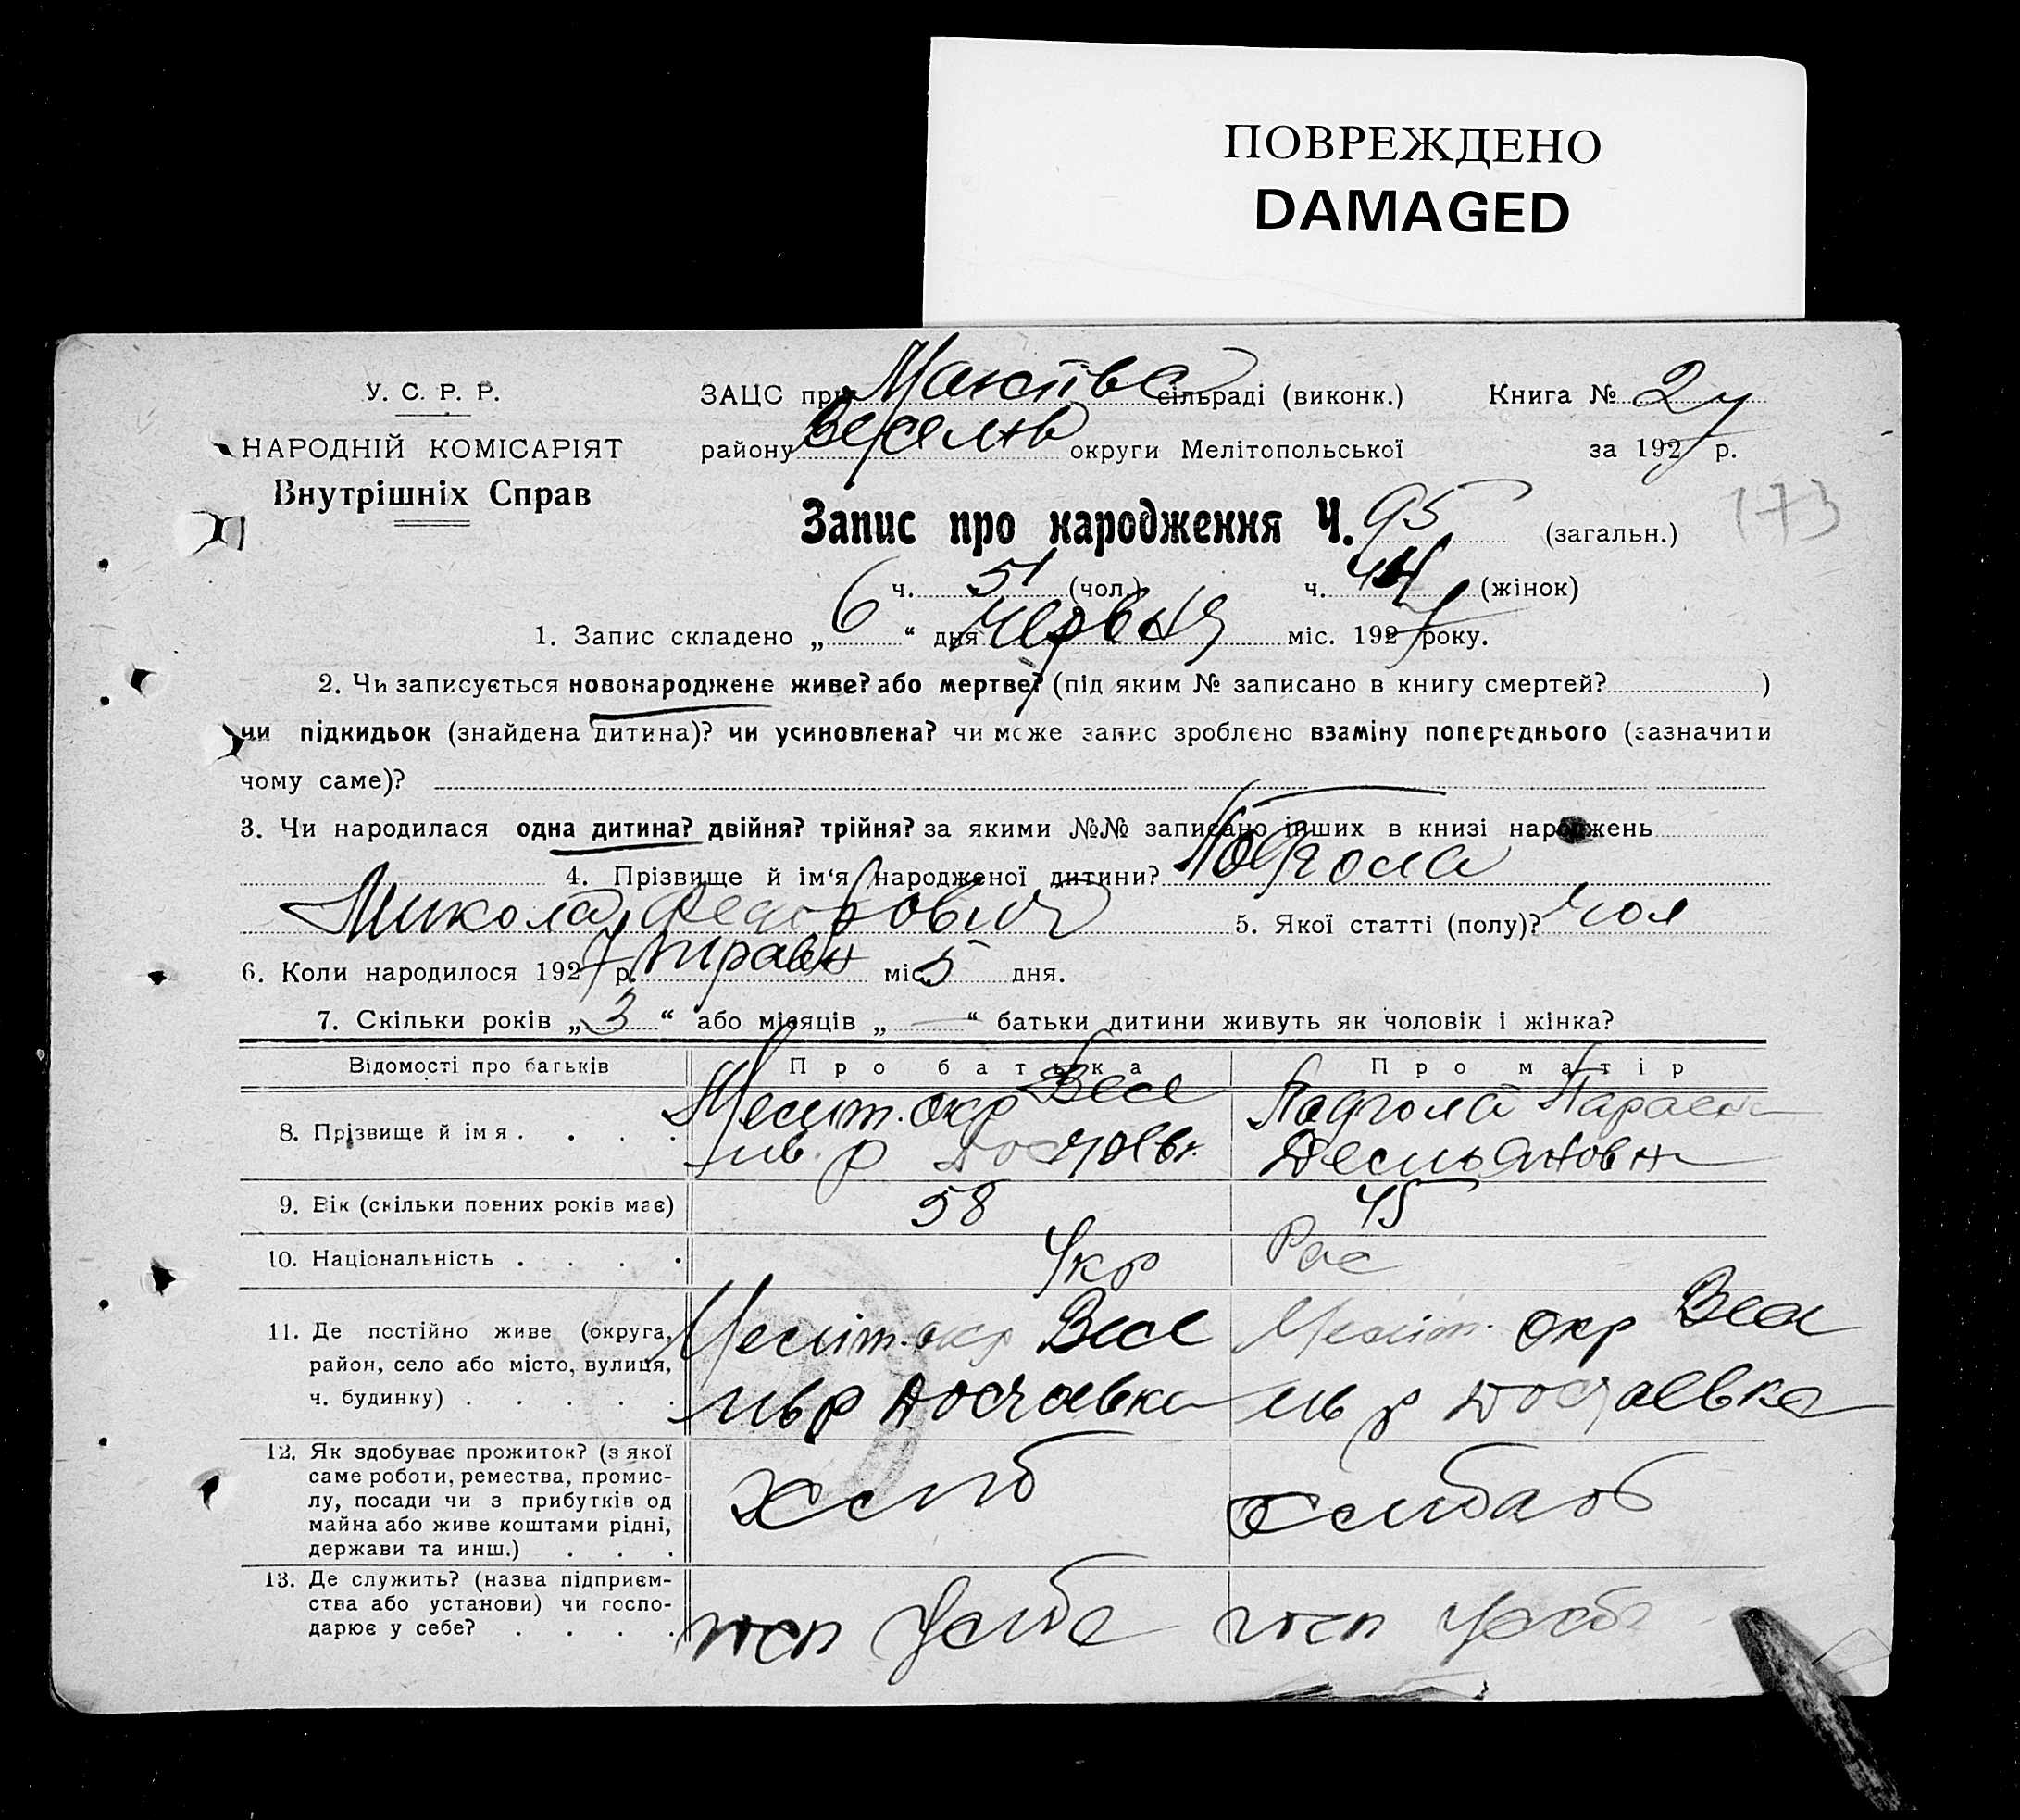 ПОВРЕЖДЕНО
DAMAGED
У. С. Р. Р.
НАРОДНІЙ КОМІСАРІЯТ
Внутрішніх Справ
ЗАЦС при сільраді (виконк.)
району округи Мелітопольської
Книга № 2
за 1927 р.
Запис про народження Ч. 95 (загальн.)
173
ч. 51 (чол.) ч. 44 (жінок)
1. Запис складено „ 6 “ дня Червня міс. 1927 року.
2. Чи записується новонароджене живе? або мертве? (під яким № записано в книгу смертей? )
чи підкидьок (знайдена дитина)? чи усиновлена? чи може запис зроблено взаміну попереднього (зазначити
чому саме)?
3. Чи народилася одна дитина? двійня? трійня? за якими №№ записано інших в книзі народжень
4. Прізвище й ім‘я народженої дитини? Подгола
Микола Федорович 5. Якої статті (полу)? чол
6. Коли народилося 1927 р. травн міс. 5 дня.
7. Скільки років „ 3 “ або місяців „ — “ батьки дитини живуть як чоловік і жінка?
Відомості про батьків Про батька Про матір
8. Прізвище й імя . . . . Меліт. окр Весе Подгола Параска
лів. р Демьяновн
9. Вік (скільки повних років має) 58 45
10. Національність . . . . Укр Рос
11. Де постійно живе (округа, Меліт. окр Весе Меліт. окр Весе
район, село або місто, вулиця,
ч. будинку) . . . . . лів р лів р
12. Як здобуває прожиток? (з якої
саме роботи, ремества, промис-
лу, посади чи з прибутків од хліб хлібароб
майна або живе коштами рідні,
держави та инш.) . . .
13. Де служить? (назва підприєм-
ства або установи) чи госпо-
дарює у себе? . . . . госп у себе госп у себе